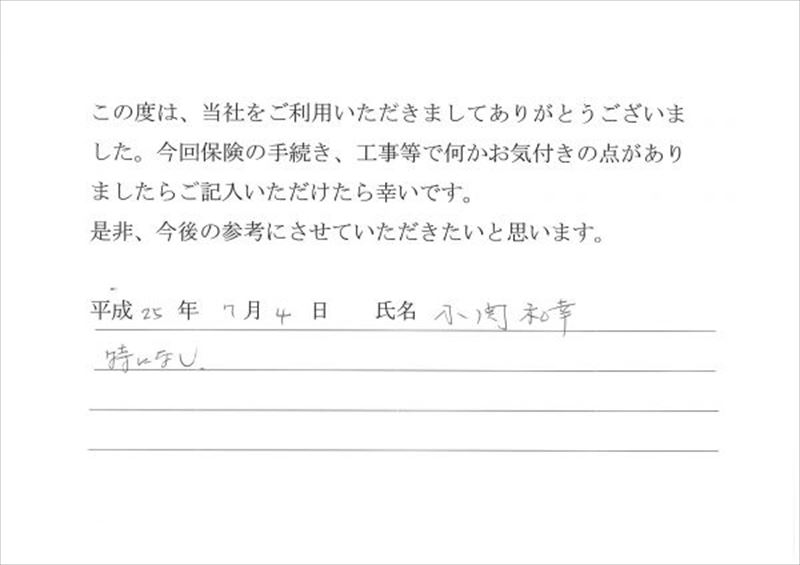 この度は、当社をご利用いただきましてありがとうございま
した。今回保険の手続き、工事等で何かお気付きの点があり
ましたらご記入いただけたら幸いです。
是非、今後の参考にさせていただきたいと思います。
平成 25 年 7月 4 日 氏名 小関 和幸
特になし.